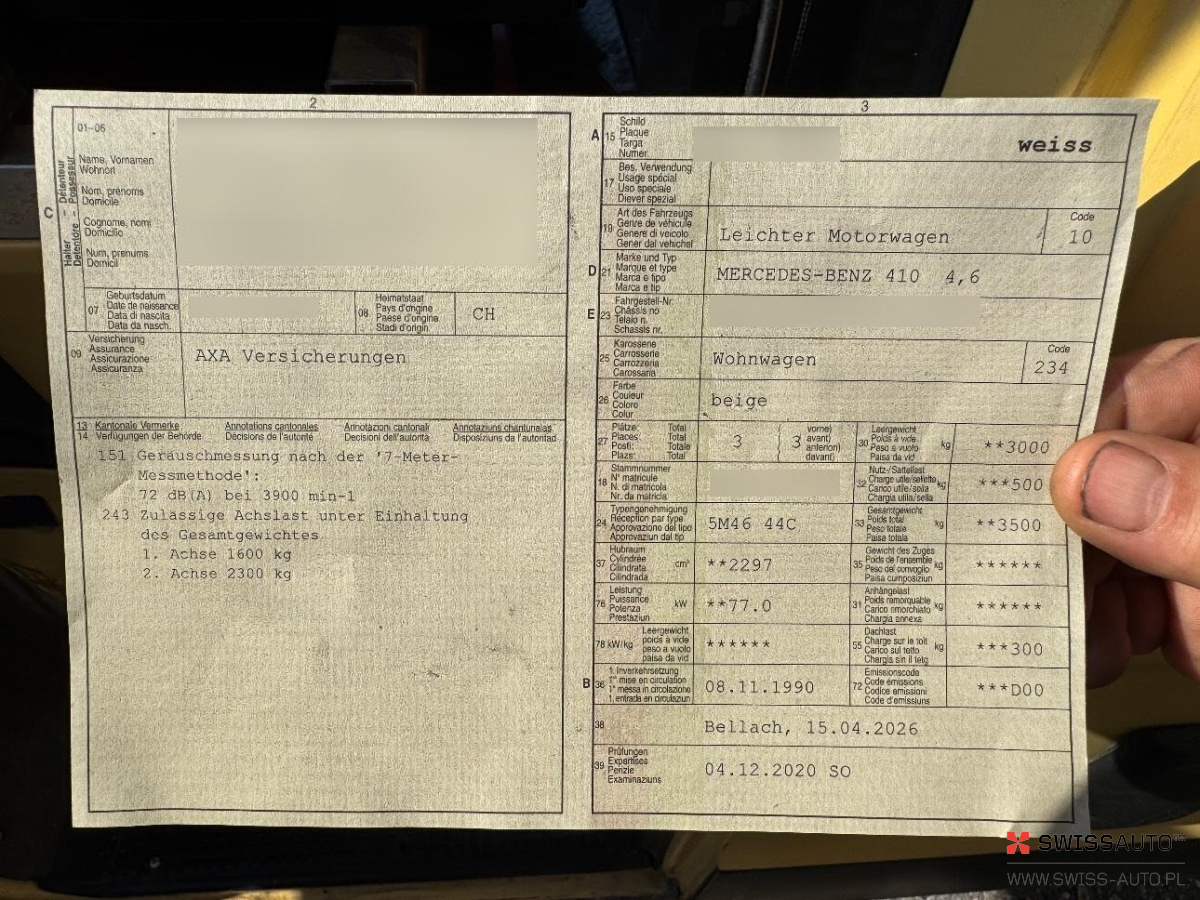 2
01-06
C
Halter – Détenteur
Detentore – Possessur
Name, Vornamen
Wohnort
Nom, prénoms
Domicile
Cognome, nomi
Domicilio
Num, prenums
Domicil
07
Geburtsdatum
Date de naissance
Data di nascita
Data da nasch.
08
Heimatstaat
Pays d'origine
Paese d'origine
Stadi d'origin
CH
09
Versicherung
Assurance
Assicurazione
Assicuranza
AXA Versicherungen
13 Kantonale Vermerke Annotations cantonales Annotazioni cantonali Annotaziuns chantunalas
14 Verfügungen der Behörde Décisions de l'autorité Decisioni dell'autorità Disposiziuns da l'autoritad
151 Geräuschmessung nach der '7-Meter-
Messmethode':
72 dB(A) bei 3900 min-1
243 Zulässige Achslast unter Einhaltung
des Gesamtgewichtes
1. Achse 1600 kg
2. Achse 2300 kg
3
A 15
Schild
Plaque
Targa
Numer
weiss
17
Bes. Verwendung
Usage spécial
Uso speciale
Diever spezial
19
Art des Fahrzeugs
Genre de véhicule
Genere di veicolo
Gener dal vehichel
Leichter Motorwagen
Code
10
D 21
Marke und Typ
Marque et type
Marca e tipo
Marca e tip
MERCEDES-BENZ 410 4,6
E 23
Fahrgestell-Nr.
Châssis no
Telaio n.
Schassis nr.
25
Karosserie
Carrosserie
Carrozzeria
Carossaria
Wohnwagen
Code
234
26
Farbe
Couleur
Colore
Colur
beige
27
Plätze: Total
Places: Total
Posti: Totale
Plazs: Total
3
( 3
vorne)
avant)
anteriori)
davant)
30
Leergewicht
Poids à vide
Peso a vuoto
Paisa da vid
kg
**3000
18
Stammnummer
N° matricule
N. di matricola
Nr. da matricla
32
Nutz-/Sattellast
Charge utile/sellette
Carico utile/sella
Chargia utila/sella
kg
***500
24
Typengenehmigung
Réception par type
Approvazione del tipo
Approvaziun dal tip
5M46 44C
33
Gesamtgewicht
Poids total
Peso totale
Paisa totala
kg
**3500
37
Hubraum
Cylindrée
Cilindrata
Cilindrada
cm³
**2297
35
Gewicht des Zuges
Poids de l'ensemble
Peso del convoglio
Paisa cumposiziun
kg
******
76
Leistung
Puissance
Potenza
Prestaziun
kW
**77.0
31
Anhängelast
Poids remorquable
Carico rimorchiato
Chargia annexa
kg
******
78 kW/kg
Leergewicht
poids à vide
peso a vuoto
paisa da vid
******
55
Dachlast
Charge sur le toit
Carico sul tetto
Chargia sin il tetg
kg
***300
B 36
1. Inverkehrsetzung
1re mise en circulation
1a messa in circolazione
1. entrada en circulaziun
08.11.1990
72
Emissionscode
Code émissions
Codice emissioni
Code d'emissiuns
***D00
38
Bellach, 15.04.2026
39
Prüfungen
Expertises
Perizie
Examinaziuns
04.12.2020 SO
SWISSAUTO
WWW.SWISS-AUTO.PL